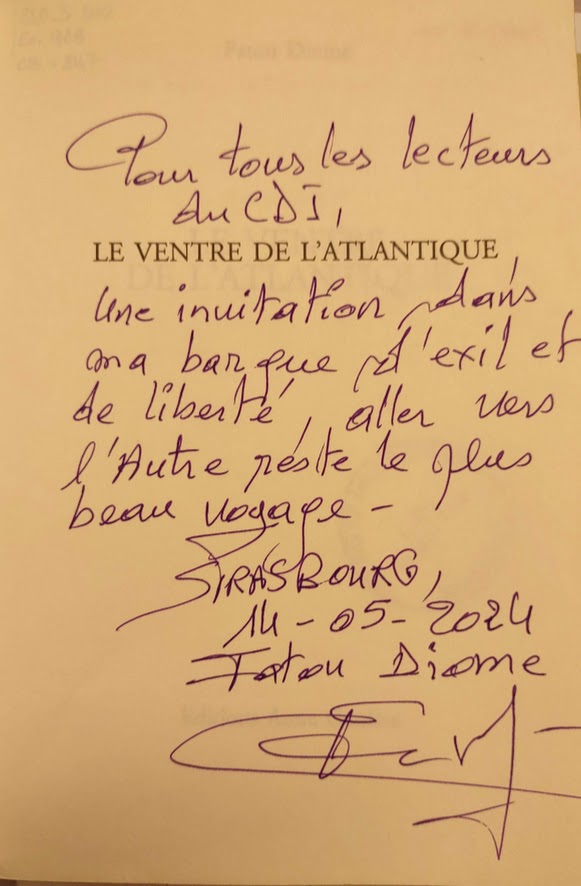 Fatou Diome
Pour tous les lecteurs
du CDI,
LE VENTRE DE L'ATLANTIQUE,
une invitation, dans
ma barque d'exil et
de liberté, aller vers
l'Autre reste le plus
beau voyage -
STRASBOURG,
14-05-2024
Fatou Diome